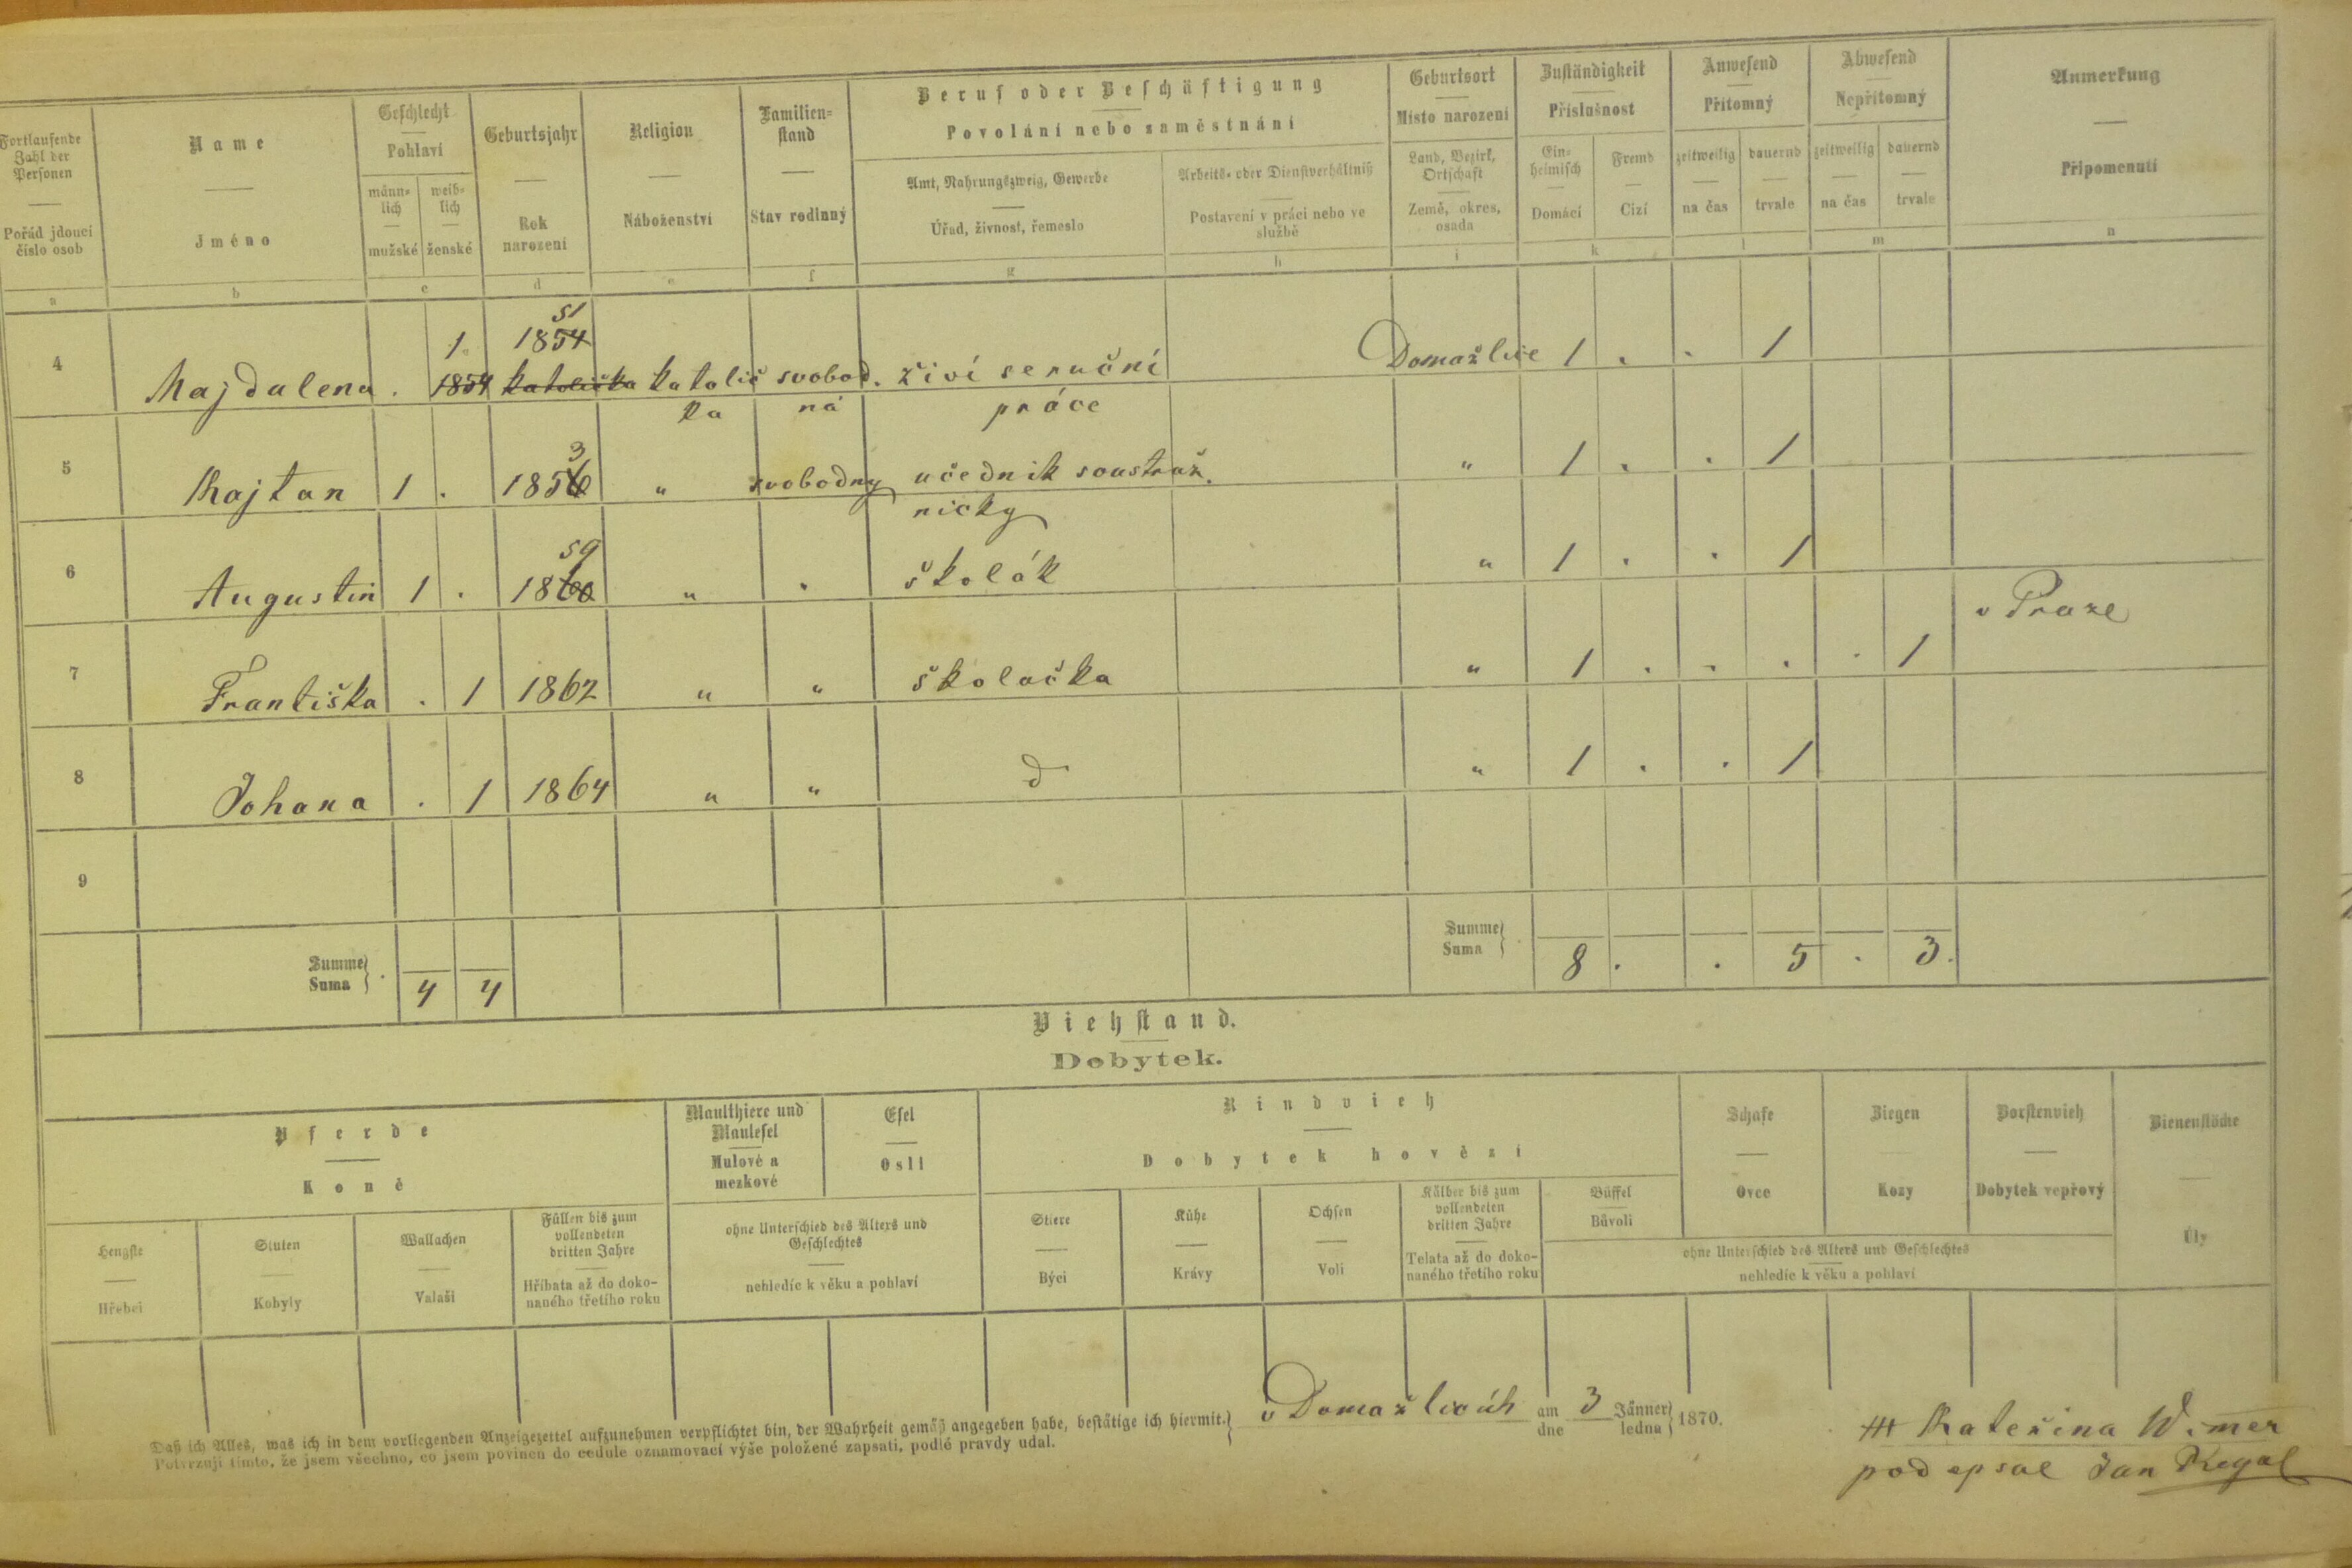 Fortlaufende Zahl der Personen
Pořád jdoucí číslo osob
Name
Jméno
Geschlecht
Pohlaví
männlich
mužské
weiblich
ženské
Geburtsjahr
Rok narození
Religion
Náboženství
Familienstand
Stav rodinný
Beruf oder Beschäftigung
Povolání nebo zaměstnání
Amt, Nahrungszweig, Gewerbe
Úřad, živnost, řemeslo
Arbeits- oder Dienstverhältniß
Postavení v práci nebo ve službě
Geburtsort
Místo narození
Land, Bezirk, Ortschaft
Země, okres, osada
Zuständigkeit
Příslušnost
Einheimisch
Domácí
Fremd
Cizí
Anwesend
Přítomný
zeitweilig
na čas
dauernd
trvale
Abwesend
Nepřítomný
zeitweilig
na čas
dauernd
trvale
Anmerkung
Připomenutí
a b c d e f g h i k l m n
51
4 1 1854
Majdalena . 1854 katolička katolič svobod. živí se ruční Domažlice 1 . . 1
ka ná práce
3
5 Kajtan 1 . 1856 " svobodny učednik soustruž. " 1 . . 1
nicky
59
6 Augustin 1 . 1860 " . školák " 1 . . 1
7 Františka . 1 1862 " " školačka " 1 . . . . 1 v Praze
8 Johana . 1 1864 " " d " 1 . . 1
9
Summe
Suma 4 4
Summe
Suma 8 . . 5 . 3.
Viehstand.
Dobytek.
Pferde
Koně
Hengste
Hřebci
Stuten
Kobyly
Wallachen
Valaši
Füllen bis zum vollendeten dritten Jahre
Hříbata až do dokonaného třetího roku
Maulthiere und Maulesel
Mulové a mezkové
Esel
Osli
ohne Unterschied des Alters und Geschlechtes
nehledíc k věku a pohlaví
Rindvieh
Dobytek hovězí
Stiere
Býci
Kühe
Krávy
Ochsen
Voli
Kälber bis zum vollendeten dritten Jahre
Telata až do dokonaného třetího roku
Büffel
Bůvoli
Schafe
Ovce
Ziegen
Kozy
Borstenvieh
Dobytek vepřový
ohne Unterschied des Alters und Geschlechtes
nehledíc k věku a pohlaví
Bienenstöcke
Úly
Daß ich Alles, was ich in dem vorliegenden Anzeigezettel aufzunehmen verpflichtet bin, der Wahrheit gemäß angegeben habe, bestätige ich hiermit.
Potvrzuji tímto, že jsem všechno, co jsem povinen do cedule oznamovací výše položené zapsati, podlé pravdy udal.
v Domažlicúh am 3 Jänner 1870.
dne ledna
+++ Kateřina Wimer
podepsal Jan Kegal